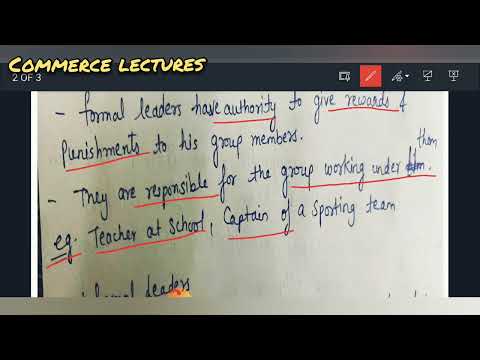 COMMERCE LECTURES
2 OF 3
- formal leaders have authority to give rewards &
Punishments to his group members.
them
- They are responsible for the group working under
eg. Teacher at School, Captain of a sporting team
leaders